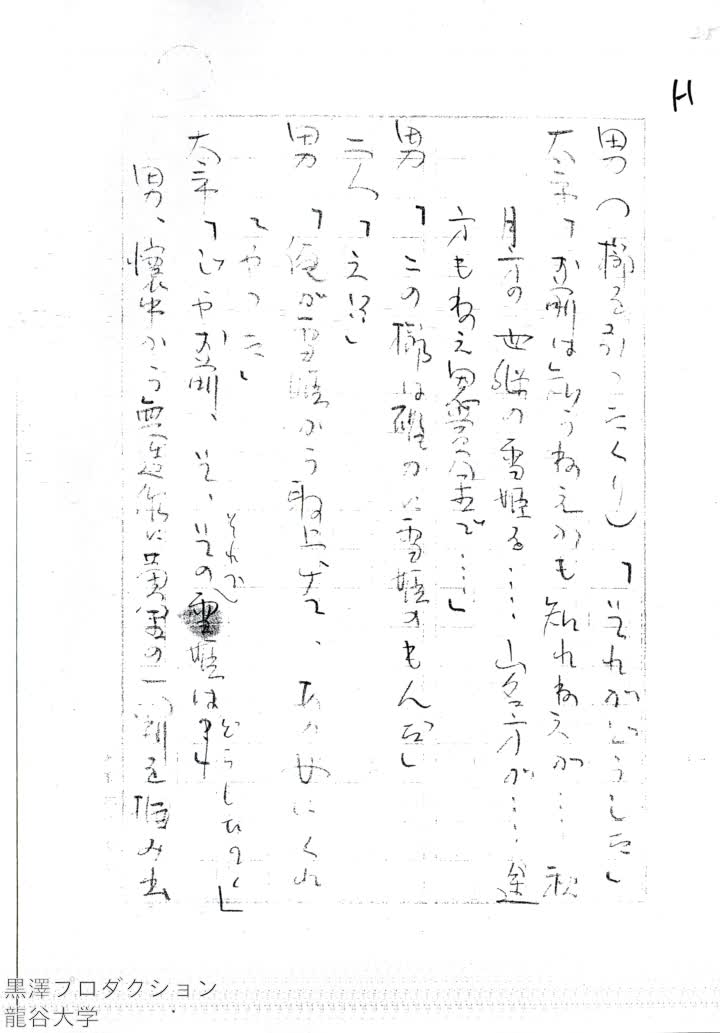 H
男（櫛を引ったくり）「それがどうした」
太平「お前は知らねえかも知れねえが…秋
月方の世継の雪姫を……山名方が……途
方もねえ恩賞金で……」
男「この櫛は確かに雪姫のもんだ」
二人「え!?」
男「俺が雪姫から取上げて、あの女にくれ
てやった」
太平「じゃお前、そ、その雪姫は
それから
どうしたの」
男、懐中から無造作に黄金の一
を掴み出
黒澤プロダクション
龍谷大学